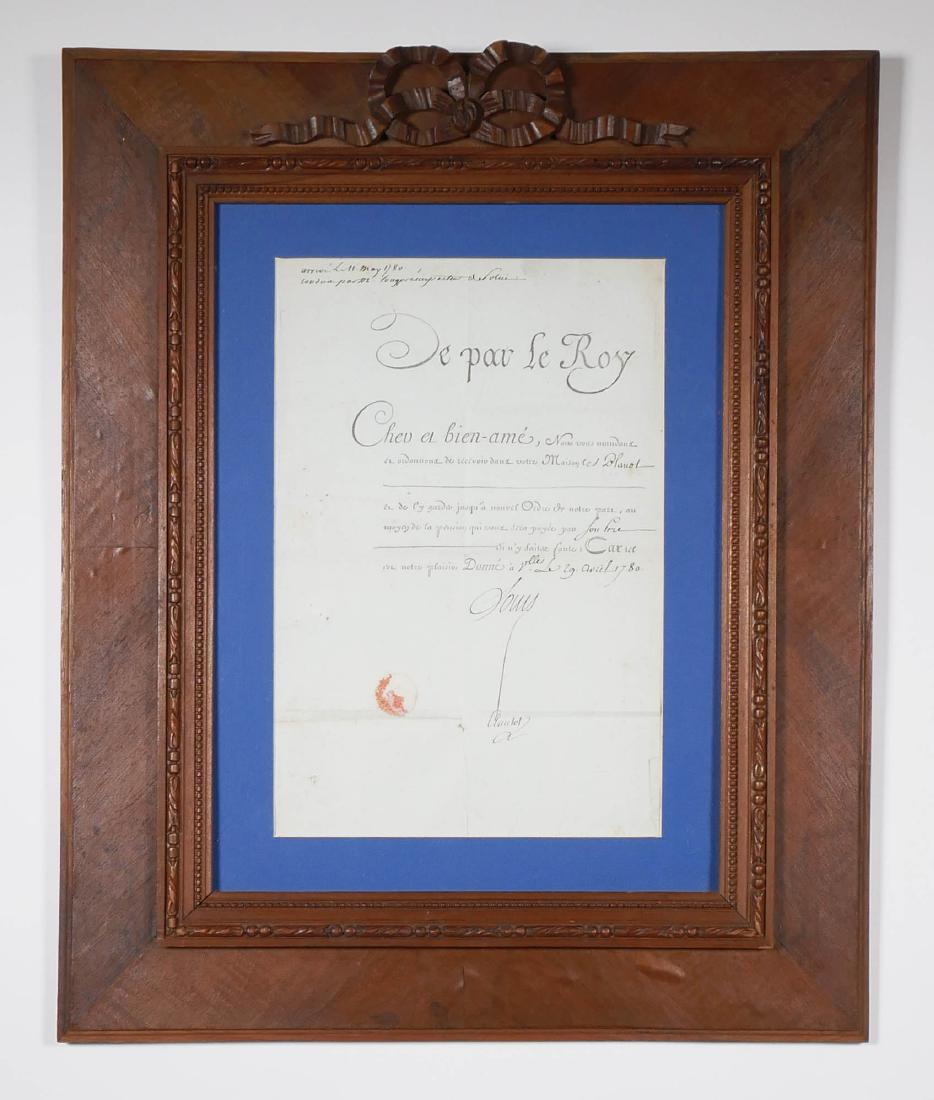 arrivé le 11 may 1780
conduit par Mr inspecteur de Police
De par le Roy
Cher et bien-amé, Nous vous mandons
et ordonnons de recevoir dans votre Maison le S. Blanot
et de l'y garder jusqu'à nouvel Ordre de notre part, au
moyen de la pension qui vous sera payée par son Père
Si n'y faites faute: Car tel
est notre plaisir Donné à V.lles Le 29 avril 1780
Louis